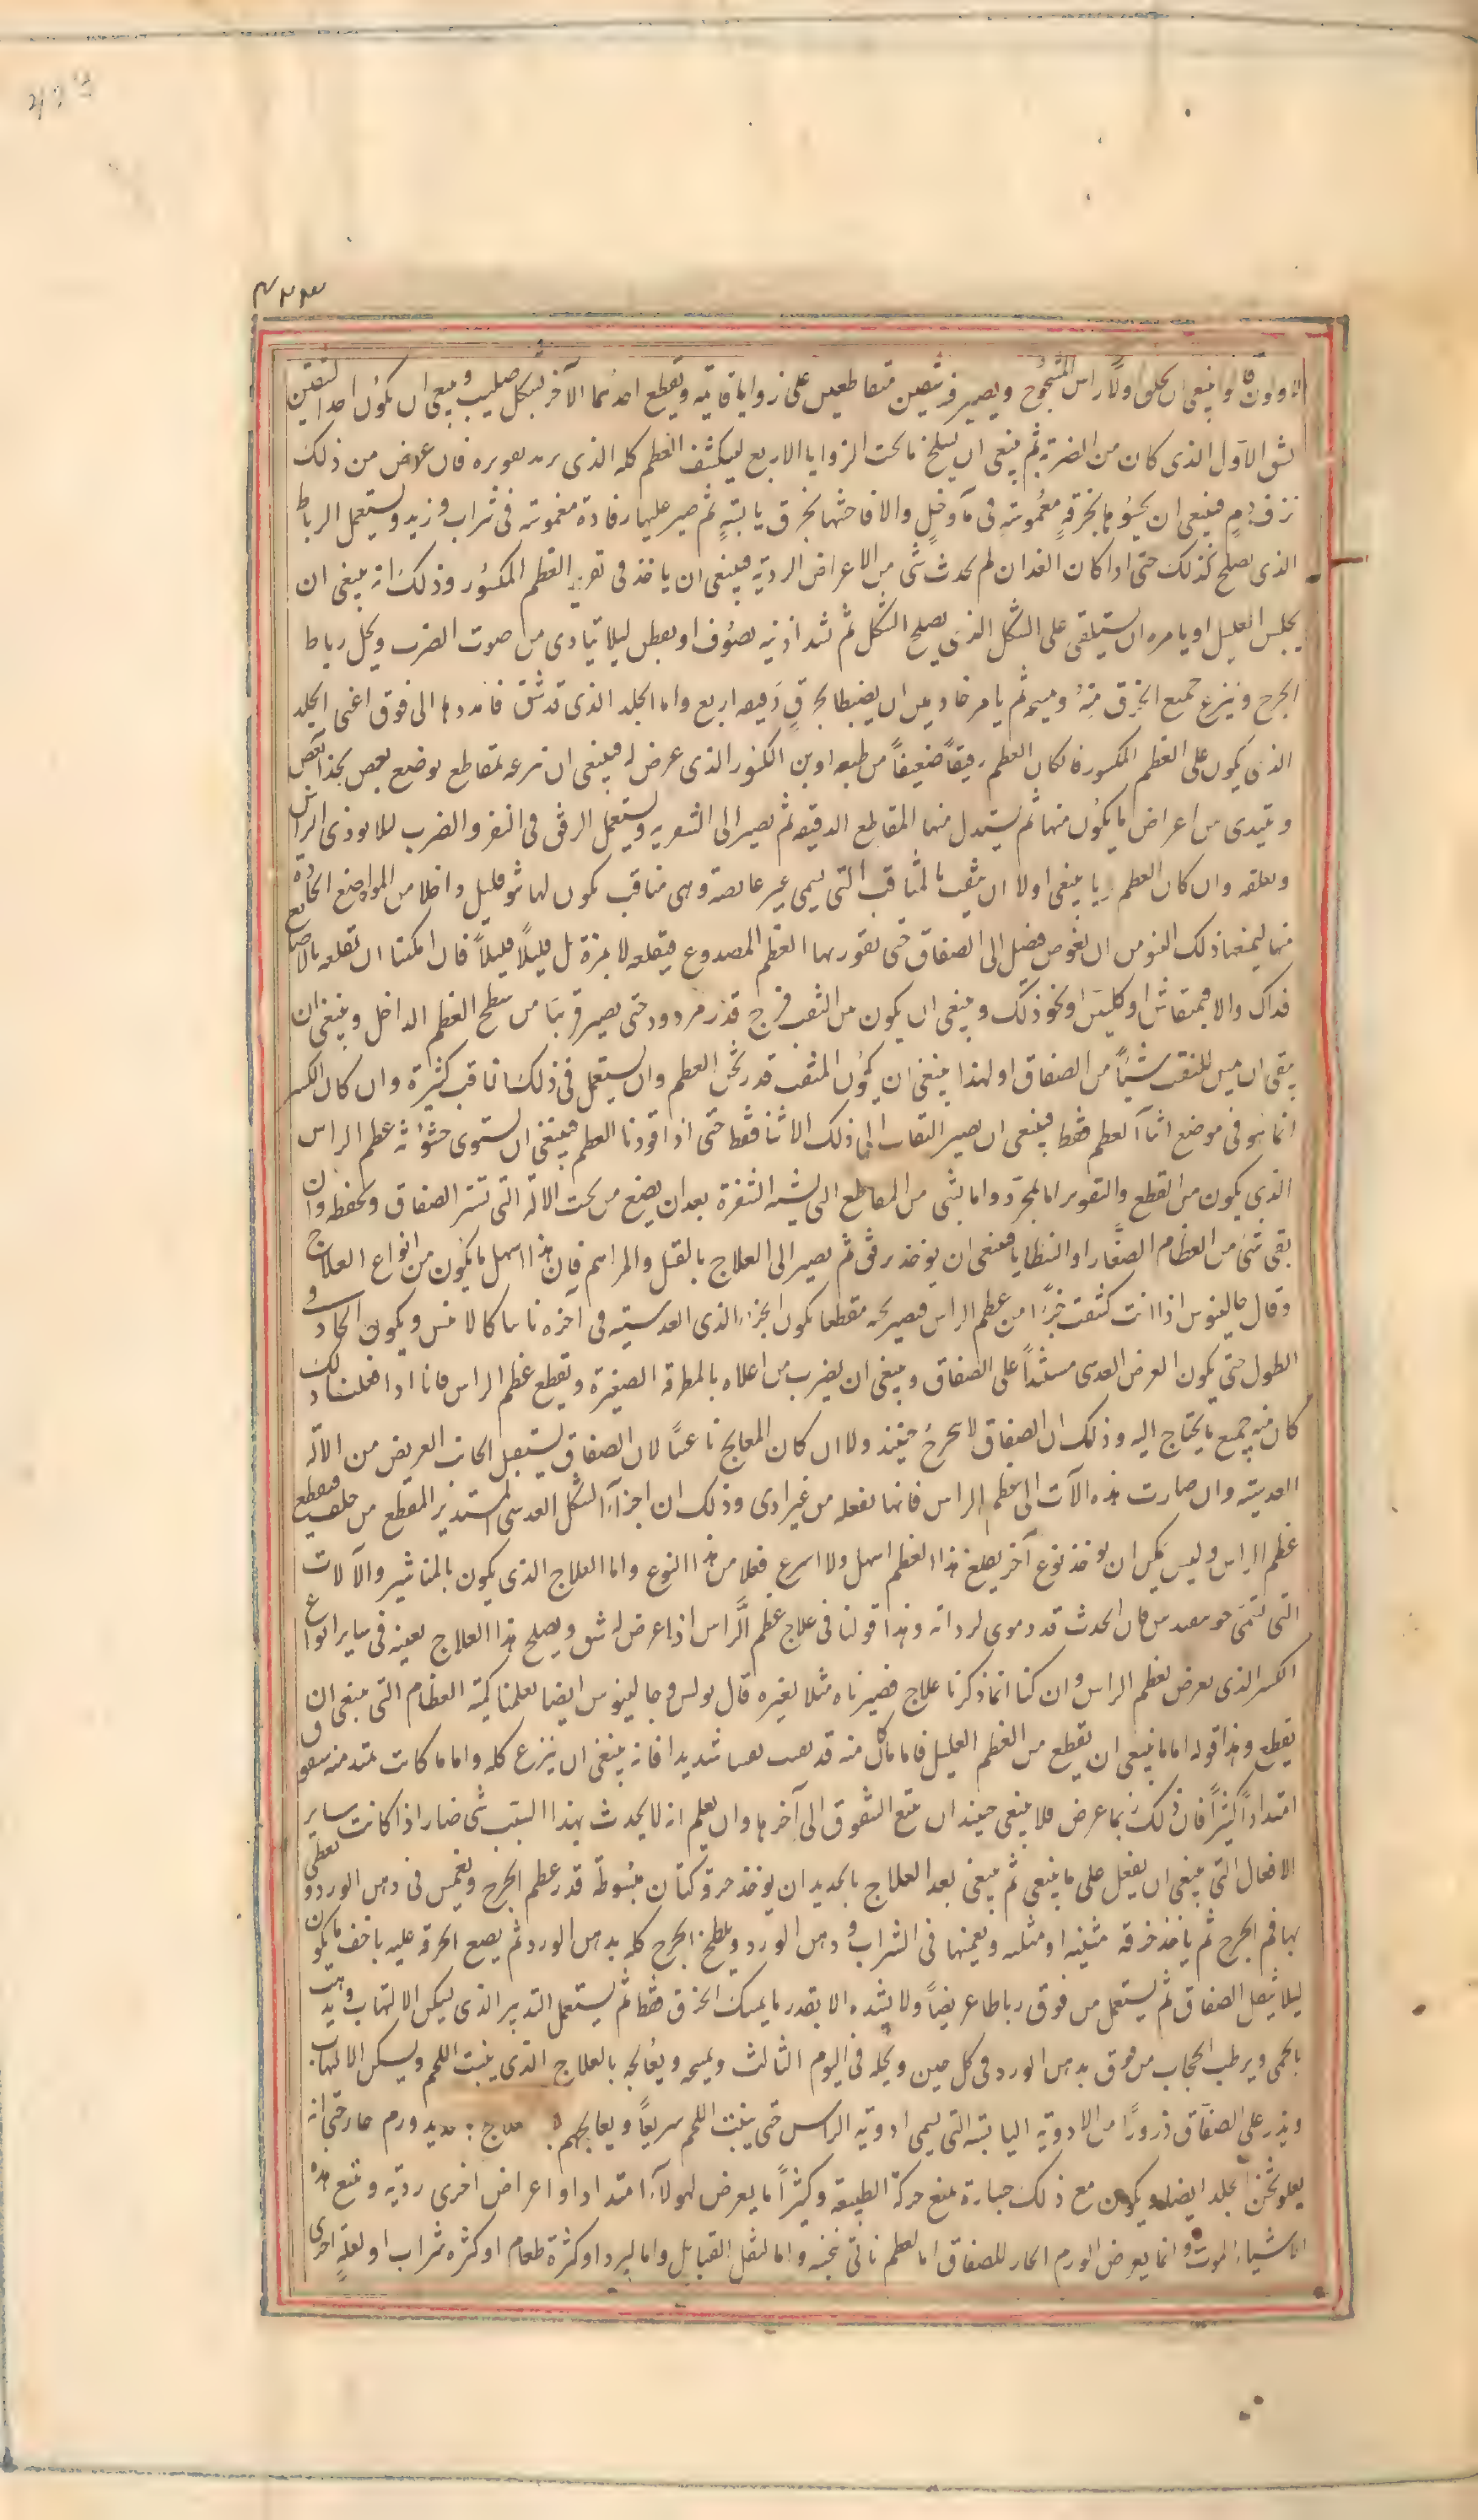 وينبغى ان يحلق اولًا راس المشجوج ويصير فيه شقين متقاطعين على زوايا قايمة ويقطع احدهما الآخر كشكل صليب وينبغى ان يكون احد الشقين
الشق الاول الذى كان من الضربة ثم ينبغى ان يسلخ ما تحت الزوايا الاربع ليكشف العظم كله الذى يريد تقويره فان عرض من ذلك
نزف دم فينبغى ان يحشوها بخرقة مغموسة فى ماء وخل والا فاحشها بخرق يابسة ثم صير عليها رفادة مغموسة فى شراب وزيت ويستعمل الرباط
الذى يصلح لذلك حتى اذا كان الغد ان لم يحدث شى من الاعراض الردية فينبغى ان ياخذ فى تقوير العظم المكسور وذلك انه ينبغى ان
يجلس العليل او يامره ان يستلقى على الشكل الذى يصلح الشكل ثم تشد اذنيه بصوف او بعطن ليلا يتاذى من صوت الضرب ويحل رباط
الجرح وينزع جميع الخرق منه ويمسحه ثم يامر خادمين ان يضبطا بخرق دقيقه اربع زوايا الجلد الذى قد شق فامددها الى فوق اعنى الجلد
الذى يكون على العظم المكسور فان كان العظم رقيقاً ضعيفاً من طبعه او من الكسر الذى عرض له فينبغى ان تنزعه بمقاطع يوضع بعض بحذا بعض
ويبتدى من اعراض ما يكون منها ثم يستبدل منها المقاطع الدقيقه ثم يصير الى الشعريه ويستعمل الرفق فى النقر والضرب لئلا يوذى الراس
ويقلقه وان كان العظم قويا ينبغى اولا ان يثقب بالمثاقب التى يسمى غير غايصة وهى مثاقب يكون لها نتو قليل داخلا من المواضع الحادة
منها ليمنعها ذلك النتو من ان يغوص فيصل الى الصفاق حتى يقور بها العظم المصدوع فيقلعه لا بمرة بل قليلًا قليلًا فان امكننا ان نقلعه بالاصابع
فذاك والا فبمنقاش او كلبتين او نحو ذلك وينبغى ان يكون بين الثقب فرج قدر مردود حتى يصير قريبًا من سطح العظم الداخل وينبغى ان
يتقى ان يمس المثقب شيئًا من الصفاق ولهذا ينبغى ان يكون المثقب قدر ثخن العظم وان يستعمل فى ذلك مثاقب كثيرة وان كان الكسر
انما هو فى موضع اثناء العظم فقط فينبغى ان يصير الثقاب الى ذلك الاثنا فقط حتى اذا قورنا العظم فينبغى ان يستوى خشونة عظم الراس
الذى يكون من القطع والتقوير اما بالمجرد واما بشى من المقاطع التى يشبه الشفرة بعد ان يضع من تحت الالة التى تستر الصفاق وتحفظه وان
بقى شى من العظام الصغار او الشظايا فينبغى ان يوخذ برفق ثم يصير الى العلاج بالفتل والمراهم فان هذا اسهل ما يكون من انواع العلاج
وقال جالينوس اذا انت كشفت جزءًا من عظم الراس فصير تحته مقطعا يكون الجزء الذى العدسية فى آخره ناسا كالا منس ويكون الحاد فى
الطول حتى يكون العرض العدسى مستندًا على الصفاق وينبغى ان يضرب من اعلاه بالمطرقة الصغيرة ويقطع عظم الراس فانا اذا فعلنا ذلك
كان منه جميع ما يحتاج اليه وذلك ان الصفاق لا يجرح حينئذ ولا ان كان المعالج ناعسًا لان الصفاق يستقبل الجانب العريض من الالة
العدسية وان صارت هذه الآلات الى عظم الراس فانها تفعله من غير اذى وذلك ان اجزاء الشكل العدسى المستدير المقطع من خلف فيقطع
عظم الراس وليس يمكن ان يوخذ نوع آخر يصلح هذا العظم اسهل ولا اسرع فعلا من هذا النوع واما العلاج الذى يكون بالمناشير والآلات
التى تسمى فان الحدث قد ذموه لرداته وهذا قولنا فى علاج عظم الراس اذا عرض له شق ويصلح هذا العلاج بعينه فى ساير انواع
الكسر الذى يعرض لعظم الراس وان كنا انما ذكرنا علاج فصيرناه مثلا لغيره قال بولس وجالينوس ايضا يعلمنا كمية العظام التى ينبغى ان
يقطع وهذا قوله اما ما ينبغى ان يقطع من العظم العليل فاما ما كان منه قد تفتت تفتتا شديدا فانه ينبغى ان ينزع كله واما ما كانت يمتد منه شقوق
امتدادًا كثيرًا فان ذلك ربما عرض فلا ينبغى حينئذ ان نتبع الشقوق الى آخرها وان يعلم انه لا يحدث بهذا السبب شى ضار اذا كانت ساير
الافعال التى ينبغى ان يفعل على ما ينبغى ثم ينبغى بعد العلاج بالحديد ان يوخذ خرقة كتان مبسوطة قدر عظم الجرح وتغمس فى دهن الورد ويغطى
بها فم الجرح ثم ياخذ خرقة مثنيه او مثلثه ويغمسها فى الشراب ودهن الورد ويلطخ الجرح كله بدهن الورد ثم يضع الخرقة عليه باخف ما يكون
ليلا يثقل الصفاق ثم يستعمل من فوق رباطا عريضًا ولا يشده الا بقدر ما يمسك الخرق فقط ثم يستعمل التدبير الذى يسكن الالتهاب ويذهب
بالحمى ويرطب الحجاب من فوق بدهن الورد فى كل حين ويحله فى اليوم الثالث ويمسحه ويعالجه بالعلاج الذى ينبت اللحم ويسكن الالتهاب
ويذر على الصفاق ذرورًا من الادوية اليابسة التى يسمى ادوية الراس حتى ينبت اللحم سريعًا ويعالجهم علاج ورم حار حتى انه
يعلو ثخن الجلد ايضا ويكون مع ذلك جسارة تمنع حركة الطبيعة وكثيرًا ما يعرض لهولاء امتداد او اعراض اخرى ردية ويتبع هذه
الاشياء الموت وانما يعرض الورم الحار للصفاق اما لعظم ناتى ينخسه واما لثقل الفتايل واما لبرد او كثرة طعام او كثرة شراب او لعلة اخرى